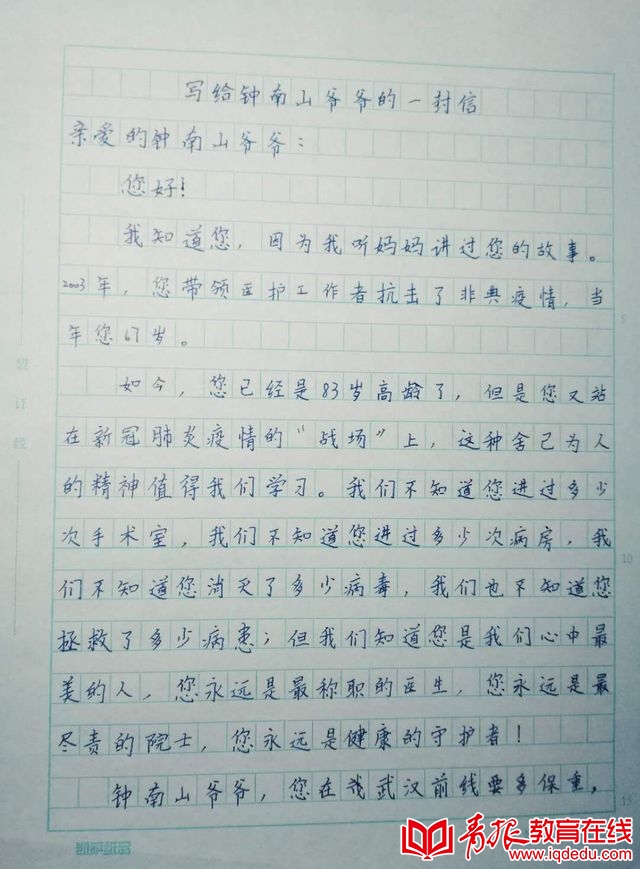 写给钟南山爷爷的一封信
亲爱的钟南山爷爷：
您好！
我知道您，因为我听妈妈讲过您的故事。
2003年，您带领医护工作者抗击了非典疫情，当
年您67岁。
如今，您已经是83岁高龄了，但是您又站
在新冠肺炎疫情的“战场”上，这种舍己为人
的精神值得我们学习。我们不知道您进过多少
次手术室，我们不知道您进过多少次病房，我
们不知道您消灭了多少病毒，我们也不知道您
拯救了多少病患；但我们知道您是我们心中最
美的人，您永远是最称职的医生，您永远是最
尽责的院士，您永远是健康的守护者！
钟南山爷爷，您在武汉前线要多保重，
装订线
5
10
15
凯萨纸品
青报教育在线
www.iqdedu.com